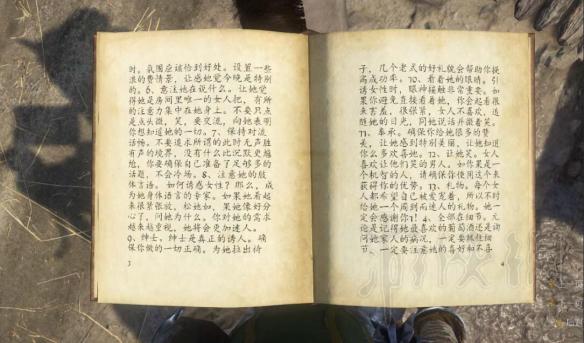 时。氛围应该恰到好处。设置一些
浪费情景，让感觉今晚是特别
的。6、意注她在说什么。让她觉
得她是房间里唯一的女人把，有所
的注意力集中在她身上。不要只点
是点头微，笑，要交流，向她表明
你想知道她的一切。7、保持对流，
话畅。不要追求所谓的此时无声胜
有声的境界，没有什么比沉默更尴
尬，你要确保自己准备了足够多的
话题，不会冷场。8、注意她的肢
体言语。如何诱惑女性？那么，成
为她身体语言的专家。如果她看起
来很紧张纹，松她如，果她像好分
心了，问她为什么。你对她的需求
越来越重视，她将会更加迷人。
9、绅士。绅士是真正的诱人。确
保你做的一切正确。为她拉出椅
3
子，几个老式的好礼貌会帮助你提
高成功率。10、看着她的眼睛。引
诱女性时，眼神接触非常重要。如
果你避免直接看着她，你会起看很
来害羞，很紧张，女人不喜欢。追
随她的目光，同她说话并微着笑。
11、奉承。确保你给她很多的赞
美，让她感到特别美丽，让她知道
你么多欢喜她。12、让她笑。女人
喜欢让他们笑的男人。如你果是一
个机智的人，请确保你使用这个来
获得你的优势。13、礼物。每个女
人都希望自己被爱宠着，所以不时
给她一个周到而迷人的礼物。她一
定会感谢你1！4、全部在细节。无
论是记得她最喜欢的葡萄酒还是询
问她家人的病况，一定要抓住细
节。一定要注意她的喜好和不喜
4